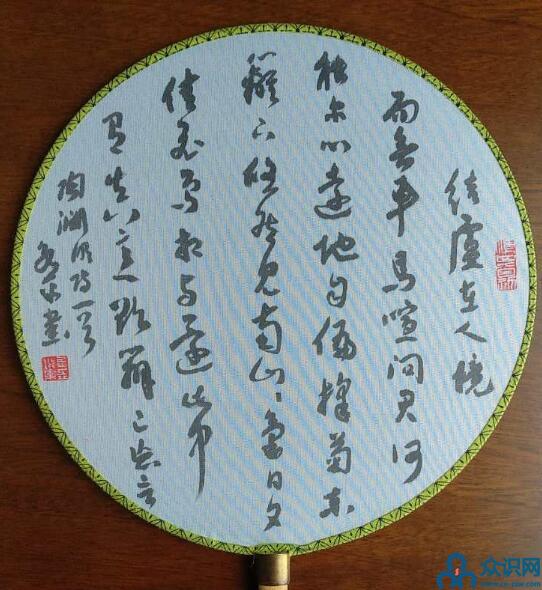 结庐在人境
而无车马喧问君何
能尔心远地自偏採菊东
篱下悠然见南山山气日夕
佳飞鸟相与还此中
有真意欲辩已忘言
陶渊明诗一首
众识网